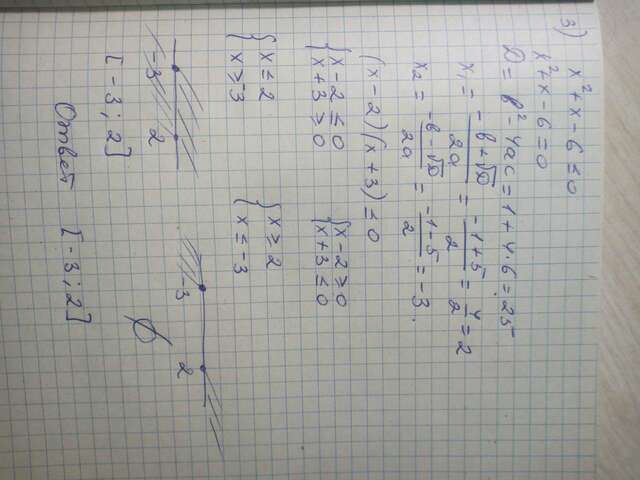 3) x² + x - 6 ≤ 0
x² + x - 6 = 0
D = b² - 4ac = 1 + 4·6 = 25
x₁ = (-b + √D)/2a = (-1 + 5)/2 = 4/2 = 2
x₂ = (-b - √D)/2a = (-1 - 5)/2 = -3.
(x - 2)(x + 3) ≤ 0
{ x - 2 ≤ 0 { x - 2 ≥ 0
{ x + 3 ≥ 0 { x + 3 ≤ 0
{ x ≤ 2 { x ≥ 2
{ x ≥ -3 { x ≤ -3
-3 2 -3 2
[-3; 2] ∅
Ответ [-3; 2]